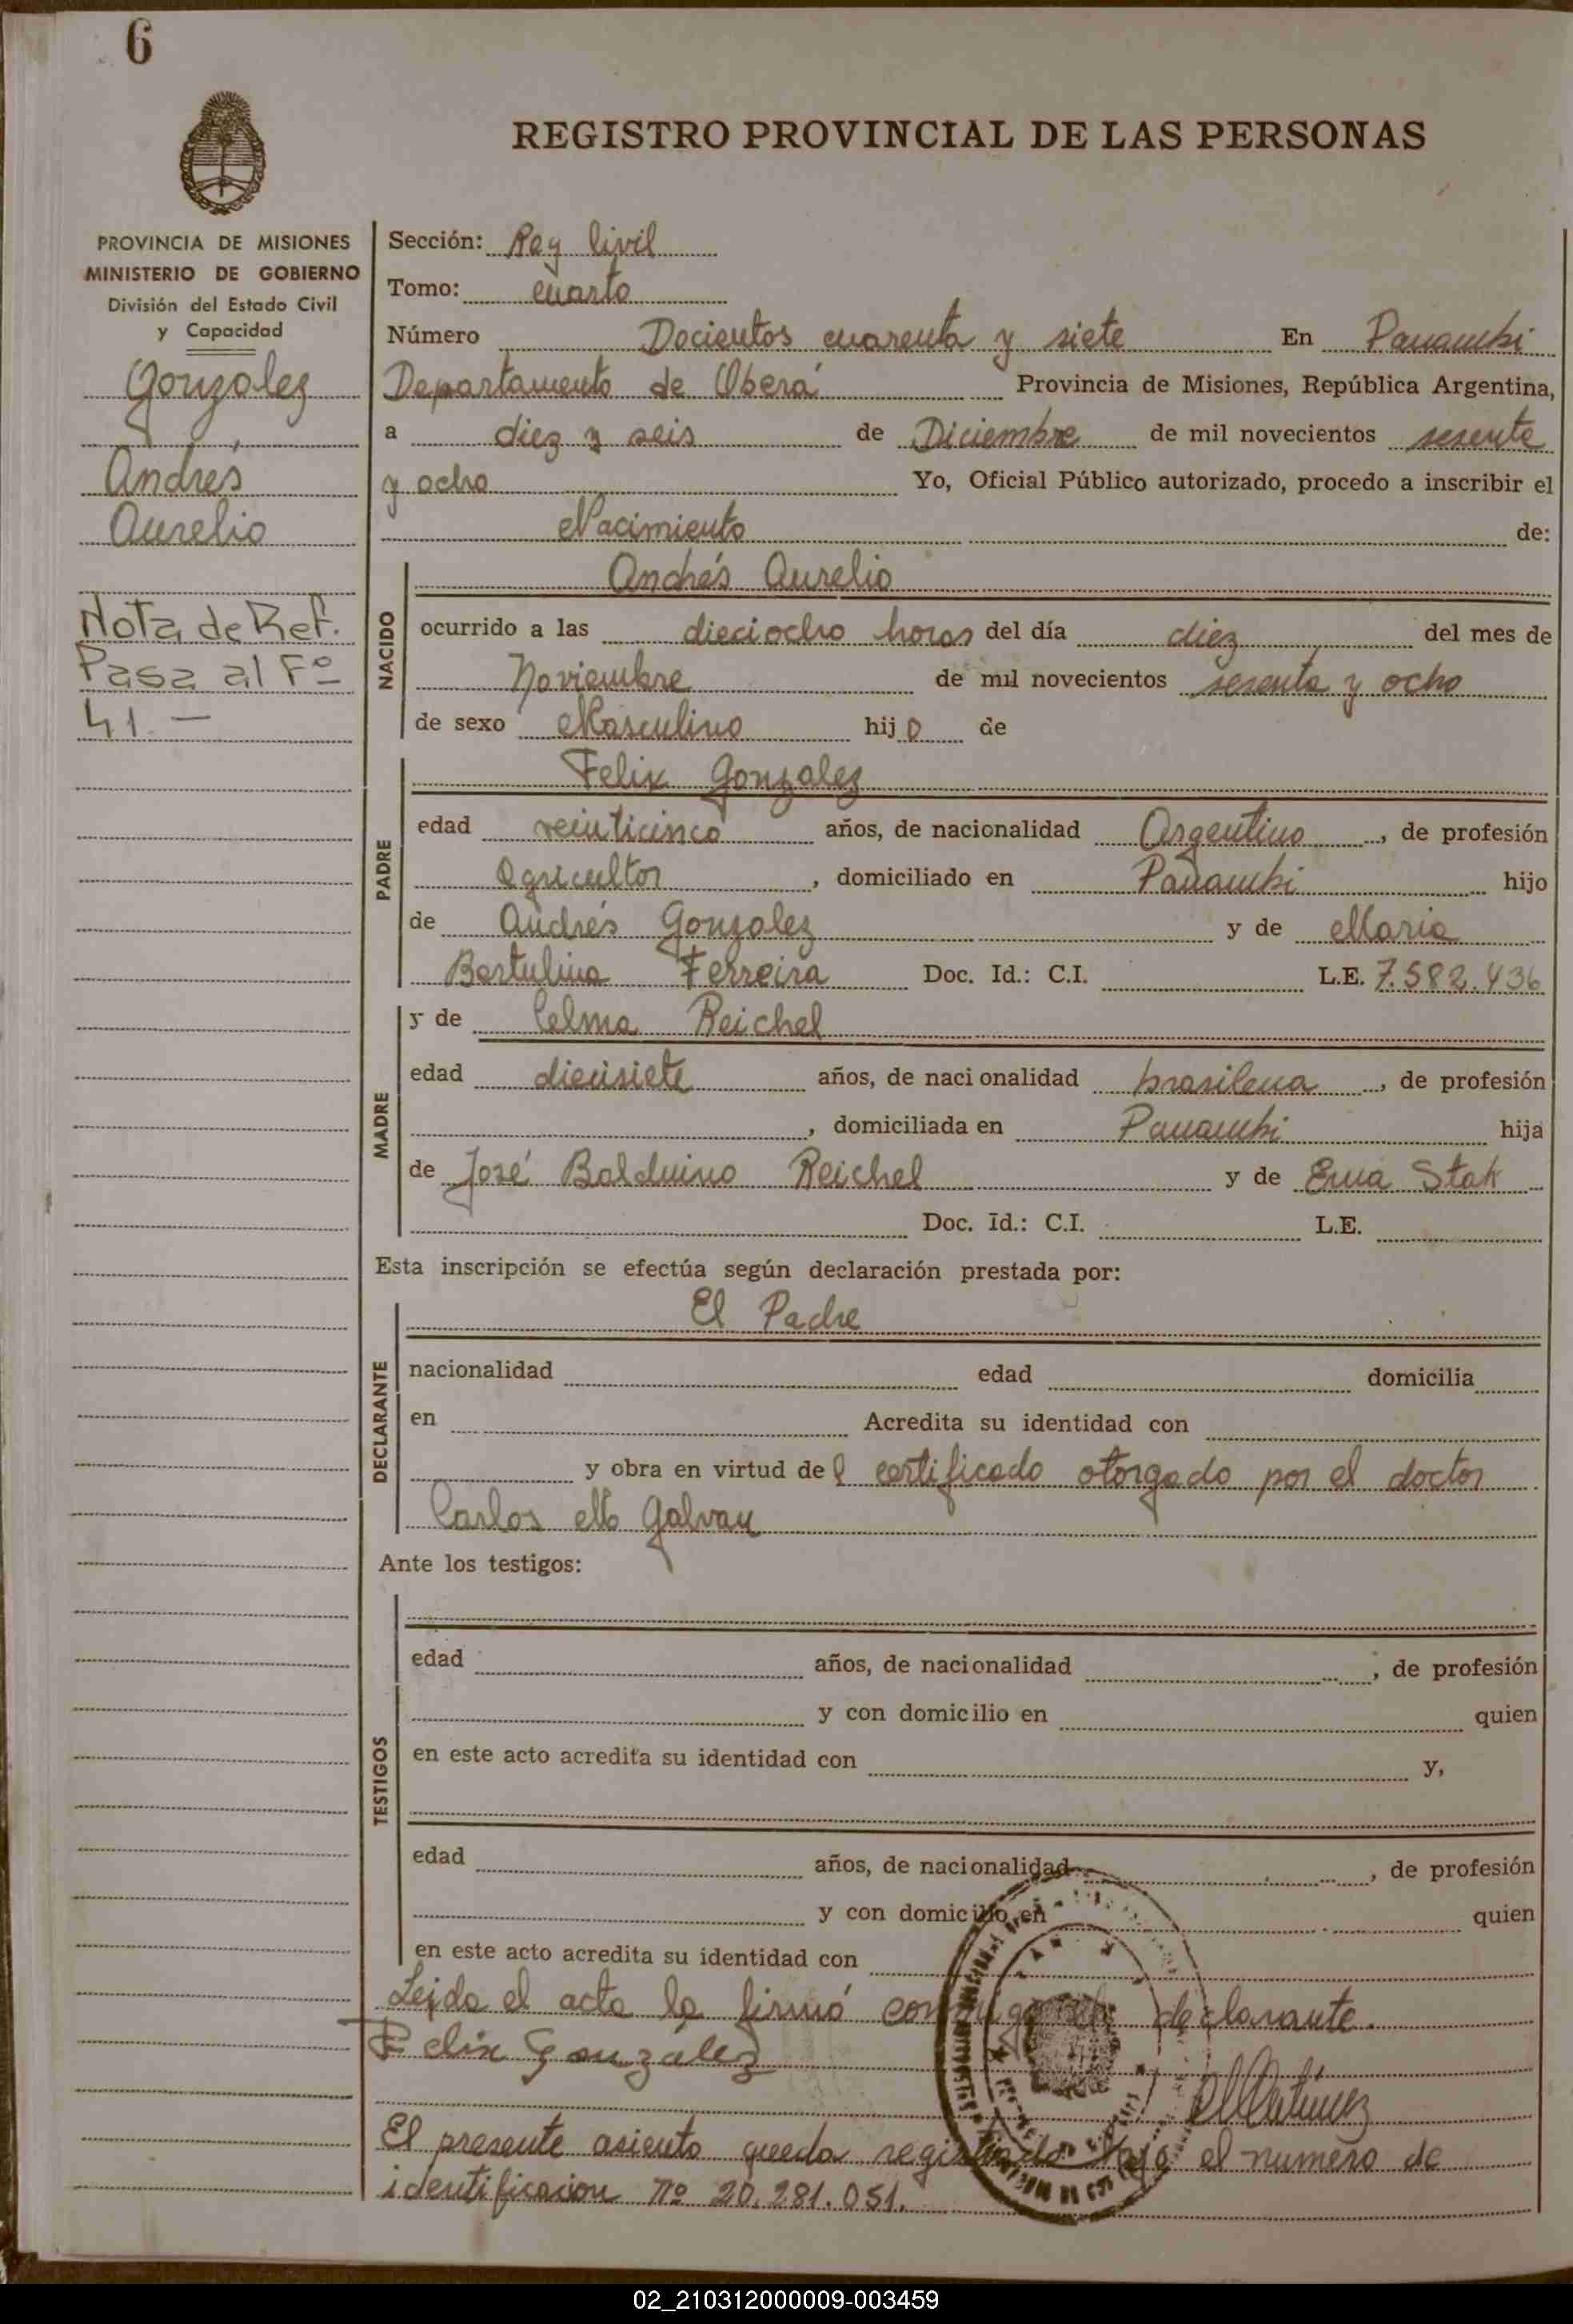 6
REGISTRO PROVINCIAL DE LAS PERSONAS
PROVINCIA DE MISIONES
MINISTERIO DE GOBIERNO
División del Estado Civil
y Capacidad
Gonzalez
Andrés
Aurelio
Nota de Ref.
Pasa al Fº
41.—
Sección: Reg Civil
Tomo: cuarto
Número Docientos cuarenta y siete En Panambi
Departamento de Oberá Provincia de Misiones, República Argentina,
a diez y seis de Diciembre de mil novecientos sesenta
y ocho Yo, Oficial Público autorizado, procedo a inscribir el
Nacimiento de:
NACIDO
Andrés Aurelio
ocurrido a las dieciocho horas del día diez del mes de
Noviembre de mil novecientos sesenta y ocho
de sexo Masculino hijo de
PADRE
Felix Gonzalez
edad veinticinco años, de nacionalidad Argentino, de profesión
agricultor, domiciliado en Panambi hijo
de Andrés Gonzalez y de Maria
Bertulina Ferreira Doc. Id.: C.I. L.E. 7.582.436
MADRE
y de Celma Reichel
edad diecisiete años, de nacionalidad brasilena, de profesión
, domiciliada en Panambi hija
de José Balduino Reichel y de Ema Stak
Doc. Id.: C.I. L.E.
Esta inscripción se efectúa según declaración prestada por:
DECLARANTE
El Padre
nacionalidad edad domicilia
en Acredita su identidad con
y obra en virtud del certificado otorgado por el doctor
Carlos Galvan
Ante los testigos:
TESTIGOS
edad años, de nacionalidad , de profesión
y con domicilio en quien
en este acto acredita su identidad con y,
edad años, de nacionalidad , de profesión
y con domicilio en quien
en este acto acredita su identidad con
Leida el acta la firmó conmigo el declarante.
Felix Gonzalez
El presente asiento queda registrado bajo el numero de
identificacion nº 20.281.051.
02_210312000009-003459